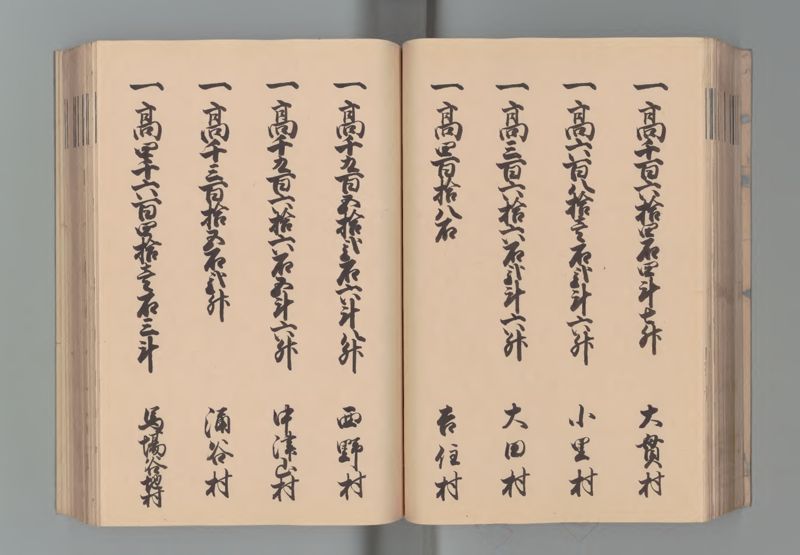 一高千百六拾四石四斗七升 大貫村
一高六百八拾壱石弐斗六升 小里村
一高三百六拾六石弐斗六升 大田村
一高四百拾八石 吉住村
一高千九百五拾弐石六斗八升 西野村
一高千九百六拾六石五斗六升 中津山村
一高千三百拾五石弐升 涌谷村
一高四千六百四拾壱石三斗 馬場谷地村